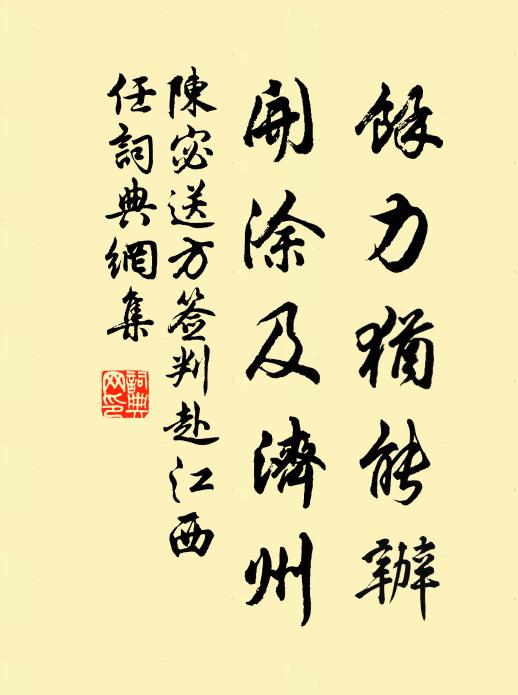 餘力猶能辦
開涂及濟州
陳宓送方簽判赴江西
任詞典網集
詞典
网印